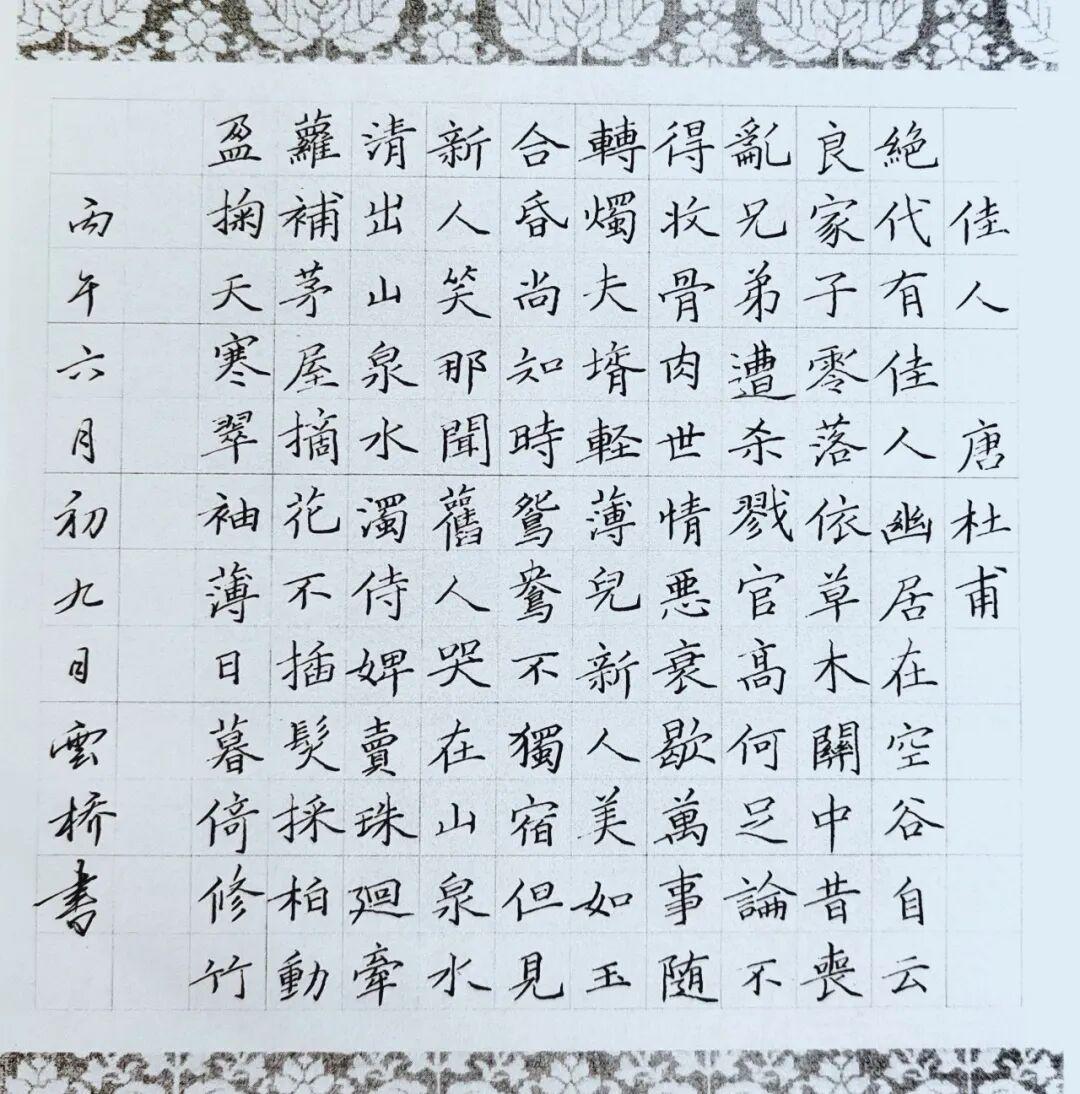 佳人 唐 杜甫
絶代有佳人幽居在空谷自云
良家子零落依草木關中昔喪
亂兄弟遭杀戮官髙何足論不
得收骨肉世情悪衰歇萬事随
轉燭夫壻軽薄兒新人美如玉
合昏尚知時鴛鴦不獨宿但見
新人笑那聞舊人哭在山泉水
清出山泉水濁侍婢賣珠廻牽
蘿補茅屋摘花不插髮採柏動
盈掬天寒翠袖薄日暮倚修竹
丙午六月初九日雲桥書